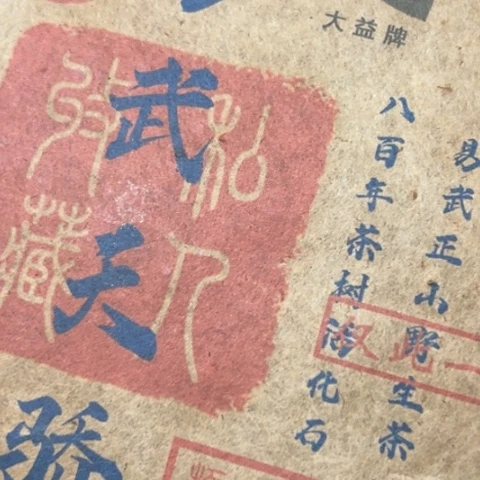 大益牌
易武正山野生茶
八百年茶树活化石
私人收藏
武天